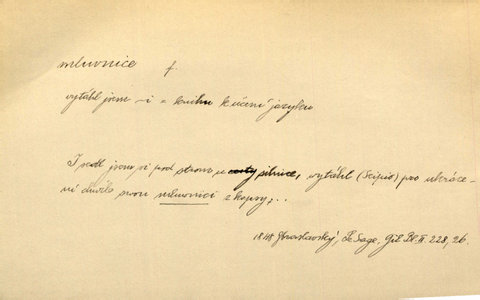 mluvnice f.
vytáhl jsem -i z knihu k učení jazyku
I sedl jsem si pod strom u silnice, vytáhl (Scipio) pro ukráce-
ní chvíle svou mluvnici z kapsy,..
1848 Zbraslavský, Le Sage, Gil Bl. II. 228, 26.